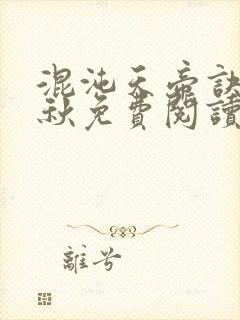 混沌天帝訣
秋免費閱讀
離兮